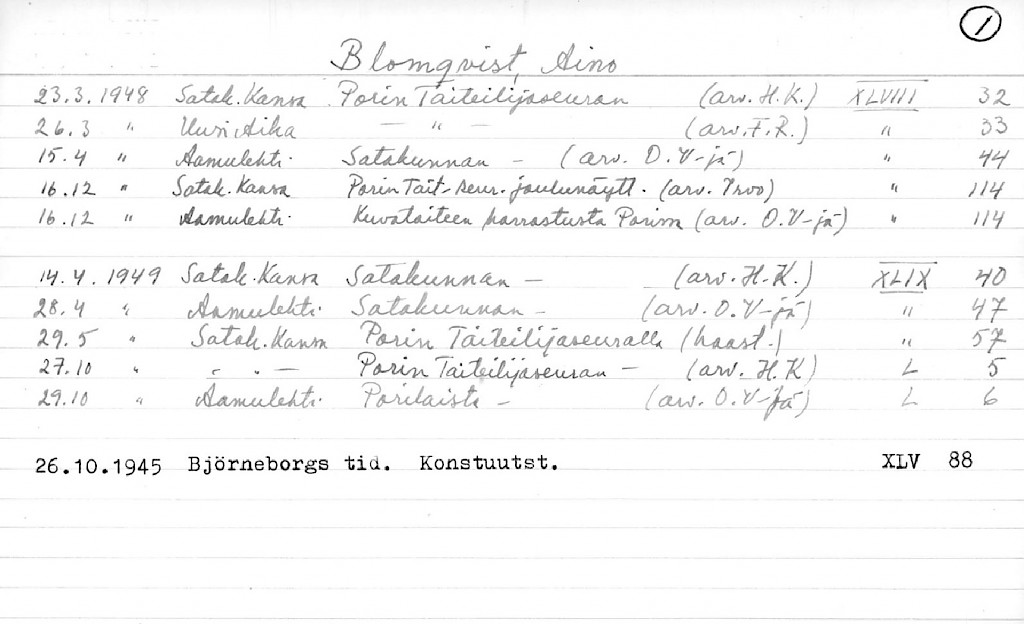 1
Blomqvist, Aino
23.3.1948 Satak.Kansa Porin Taiteilijaseuran (arv. H.K.) XLVIII 32
26.3 " Uusi Aika — " — (arv. F.R.) " 33
15.4 " Aamulehti. Satakunnan — (arv. O.V-jä) " 44
16.12 " Satak.Kansa Porin Tait-seur. joulunäytt. (arv. Irvo) " 114
16.12 " Aamulehti. Kuvataiteen harrastusta Porissa (arv. O.V-jä) " 114
14.4.1949 Satak.Kansa Satakunnan — (arv. H.K.) XLIX 40
28.4 " Aamulehti. Satakunnan — (arv. O.V-jä) " 47
29.5 " Satak.Kansa Porin Taiteilijaseuralla (haast.) " 57
27.10 " " " — Porin Taiteilijaseuran — (arv. H.K) L 5
29.10 " Aamulehti. Porilaista — (arv. O.V-jä) L 6
26.10.1945 Björneborgs tid. Konstuutst. XLV 88